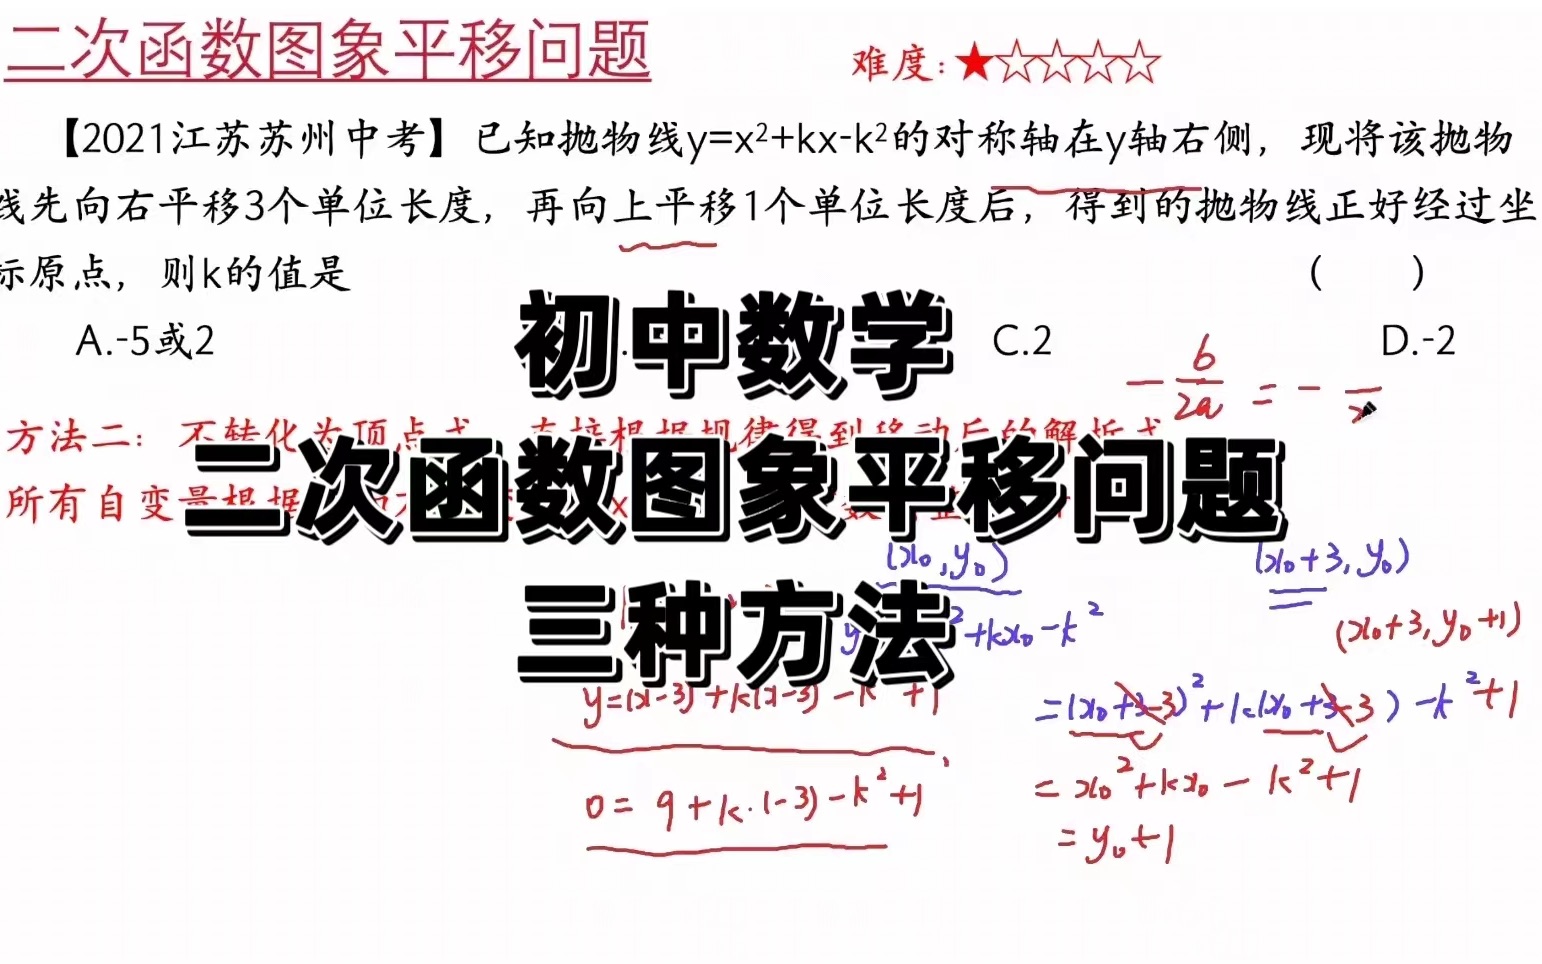 二次函数图象平移问题
难度:★☆☆☆☆
【2021江苏苏州中考】已知抛物线y=x²+kx-k²的对称轴在y轴右侧，现将该抛物
线先向右平移3个单位长度，再向上平移1个单位长度后，得到的抛物线正好经过坐
标原点，则k的值是 ( )
A.-5或2 C.2 D.-2
初中数学
二次函数图象平移问题
三种方法
-b/2a = -
方法二：不转化为顶点式 直接根据规律得到移动后的解析式
所有自变量根据
(x₀,y₀) (x₀+3,y₀)
+kx₀-k² (x₀+3,y₀+1)
y=(x-3)²+k(x-3)-k²+1
=(x₀+3-3)²+k(x₀+3-3)-k²+1
0=9+k·(-3)-k²+1
=x₀²+kx₀-k²+1
=y₀+1